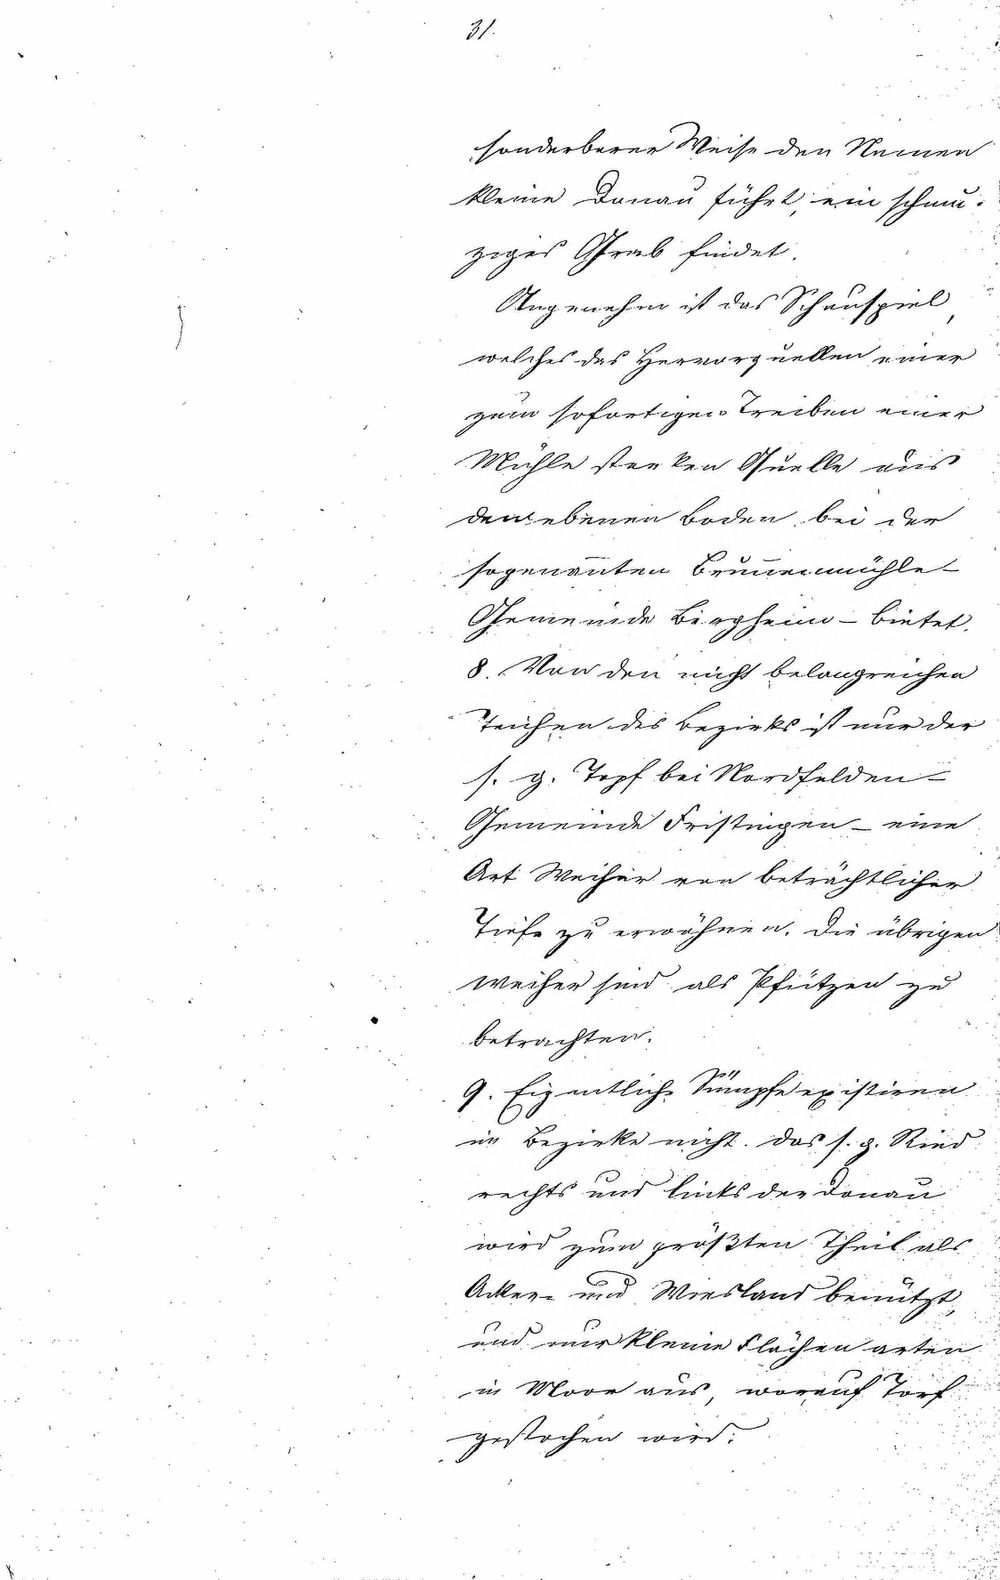 31.
sonderbarer Weise den Namen
kleine Donau führt, ein schmu-
ziges Grab findet.
Angenehm ist das Schauspiel,
welches das Hervorquellen einer
zum sofortigen Treiben einer
Mühle starken Quelle aus
dem ebenen Boden bei der
sogenan̄ten Brun̄enmühle –
Gemeinde Bergheim – bietet.
8. Von den nicht belangreichen
Teichen des Bezirks ist nur der
s. g. Topf bei Nordfelden –
Gemeinde Fristingen – eine
Art Weiher von beträchtlicher
Tiefe zu erwähnen. Die übrigen
Weiher sind als Pfützen zu
betrachten.
9. Eigentliche Sümpfe existiren
im Bezirke nicht. Das s. g. Ried
rechts und links der Donau
wird zum größten Theil als
Acker- und Wiesland benützt,
und nur kleine Flächen arten
in Moor aus, worauf Torf
gestochen wird.